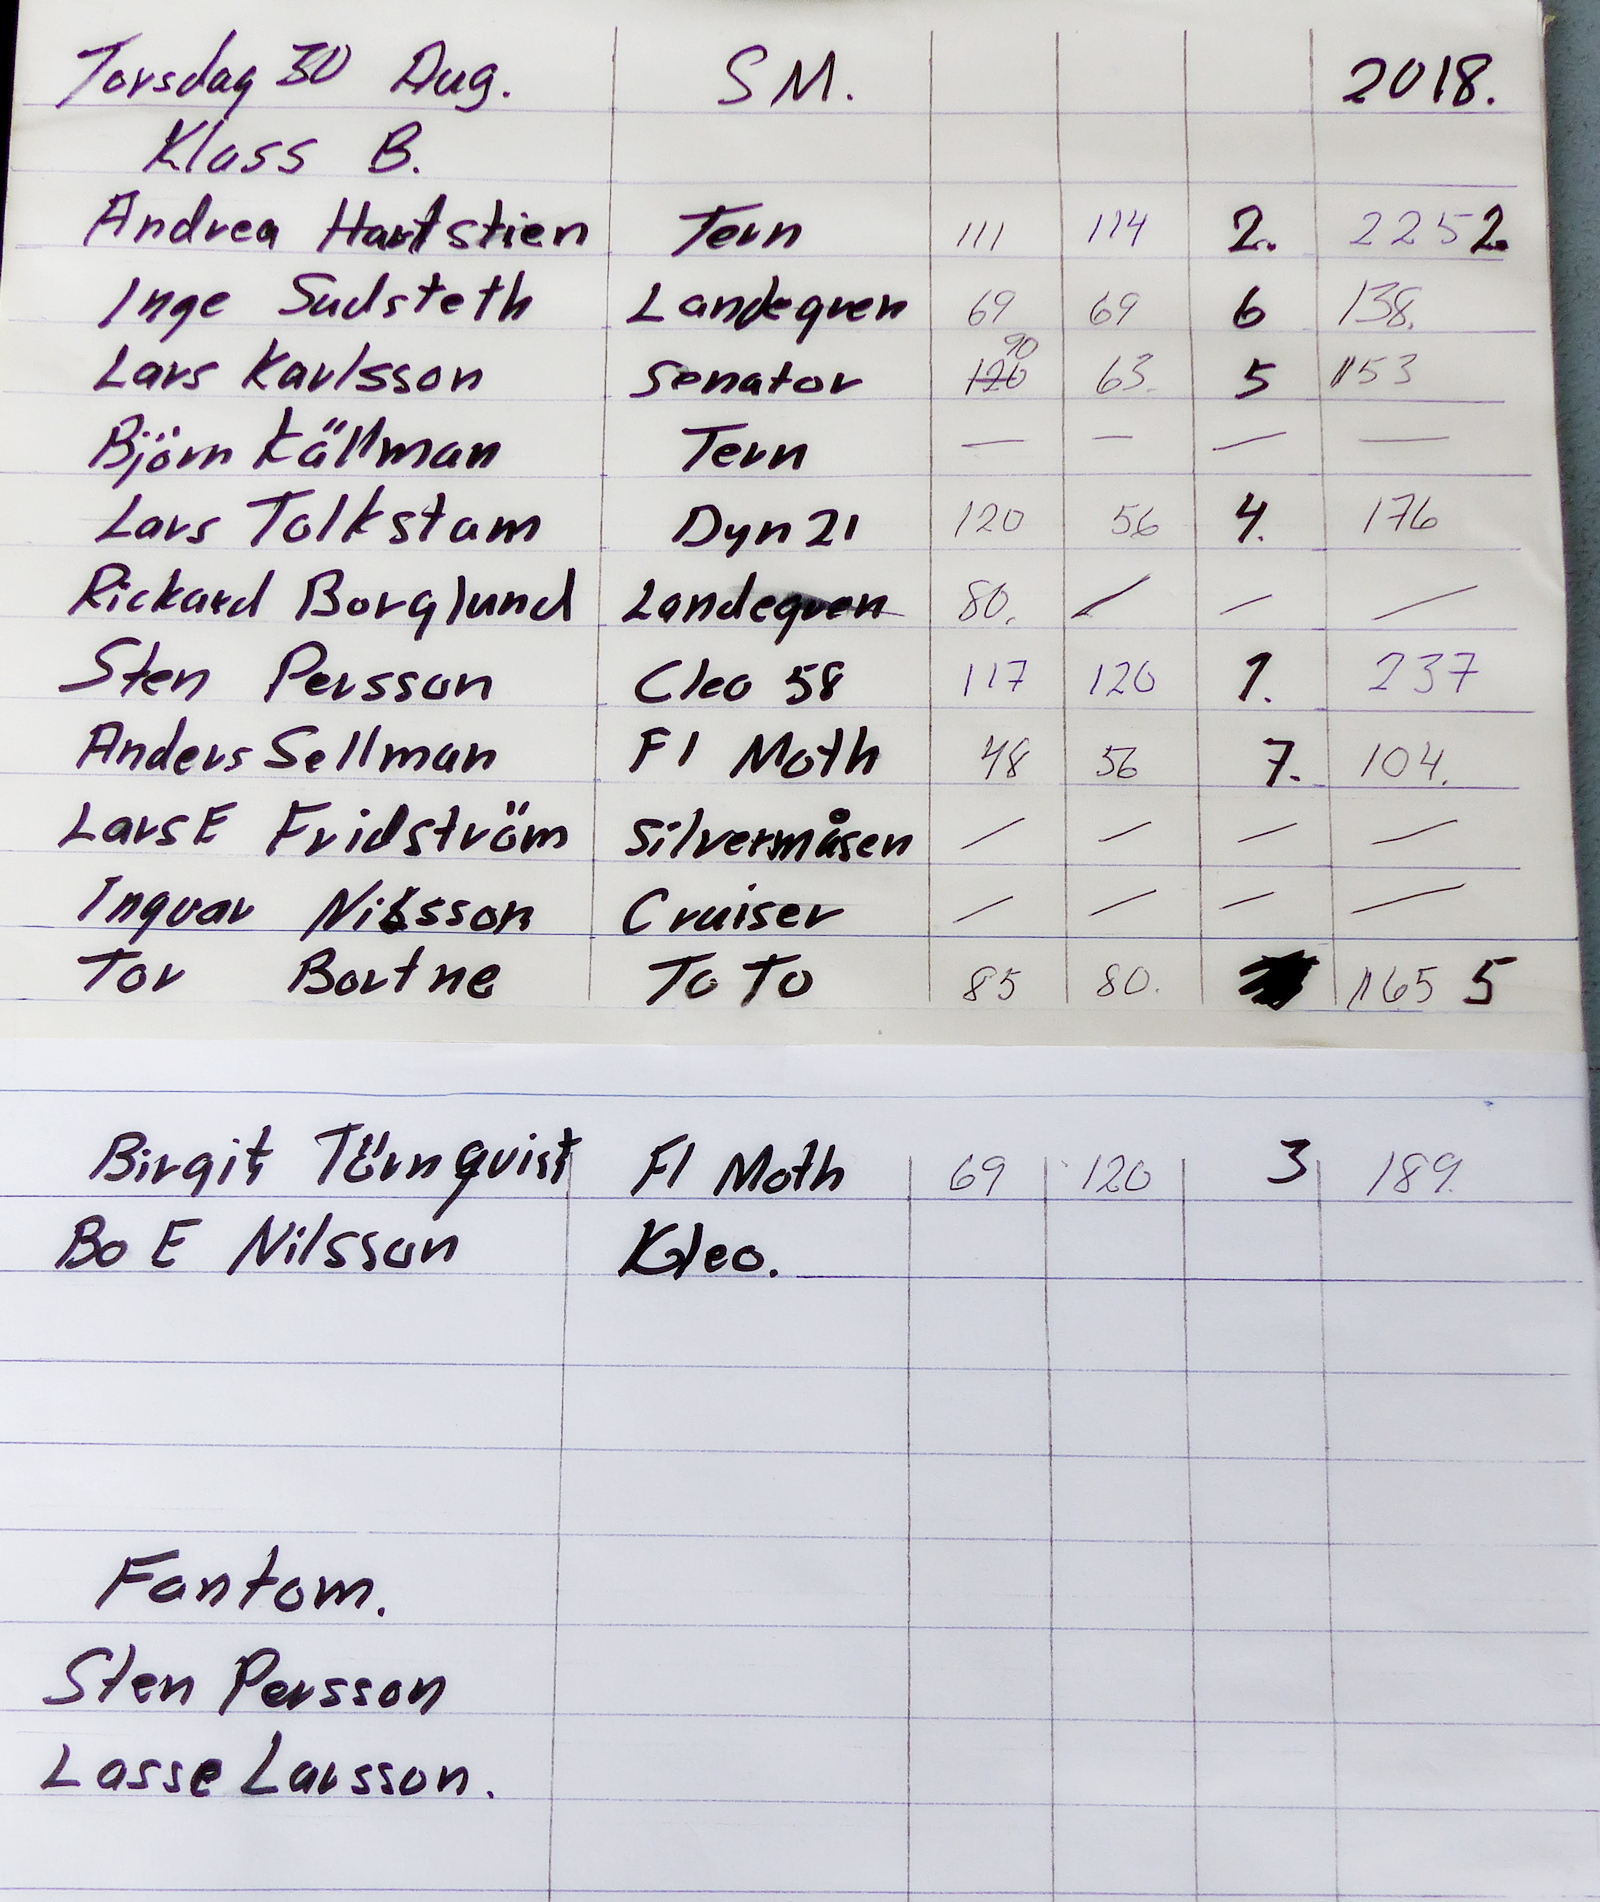 Torsdag 30 Aug. SM. 2018.
Klass B.
Andrea Hartstien Tern 111 114 2. 225 2.
Inge Sudsteth Landeqven 69 69 6 138.
90
Lars Karlsson Senator 120 63. 5 153
Björn Källman Tern — — — —
Lars Tolkstam Dyn 21 120 56 4. 176
Rickard Borglund Landeqven 80. / / /
Sten Persson Cleo 58 117 120 1. 237
Anders Sellman F1 Moth 48 56 7. 104.
Lars E Fridström Silvermåsen / / / /
Ingvar Nilsson Cruiser / / / /
Tor Bortne To To 85 80. 165 5
Birgit Törnqvist F1 Moth 69 120 3 189.
Bo E Nilsson Kleo.
Fantom.
Sten Persson
Lasse Larsson.